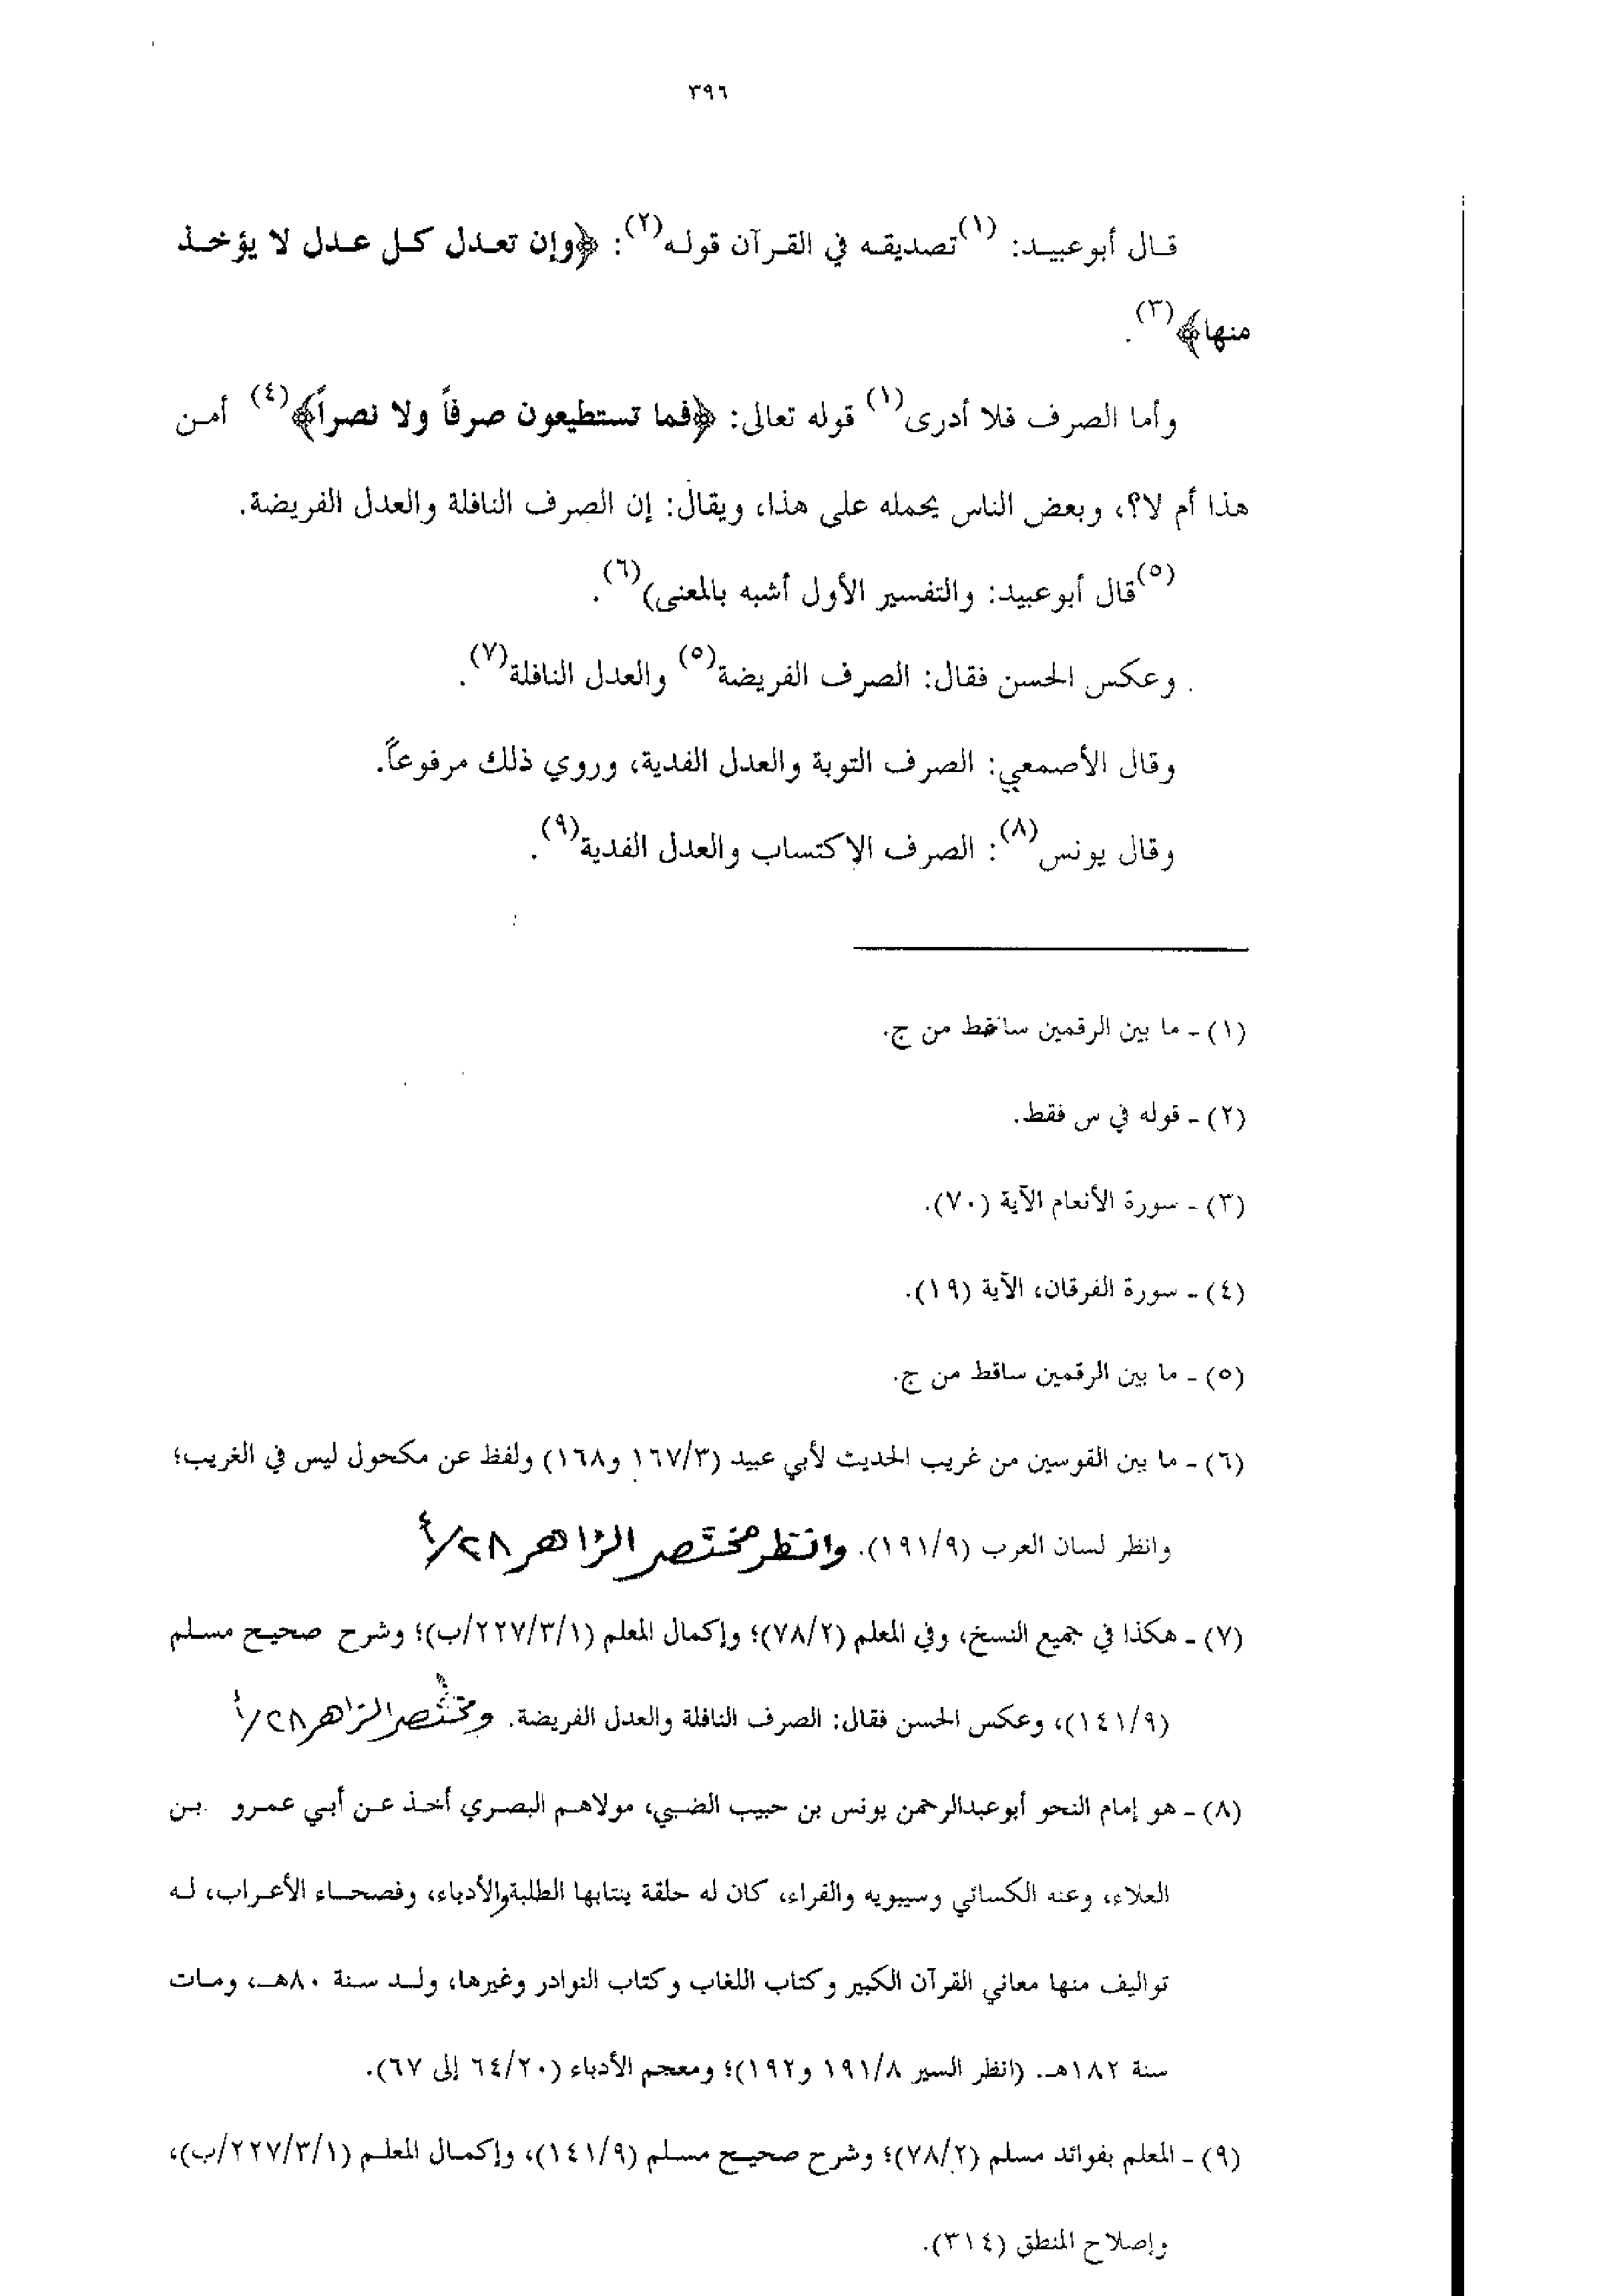 ٣٩٦
قال أبوعبيد: (١)تصديقه في القرآن قوله(٢): ﴿وإن تعدل كل عدل لا يؤخذ
منها﴾(٣).
وأما الصرف فلا أدرى(١) قوله تعالى: ﴿فما تستطيعون صرفاً ولا نصراً﴾(٤) أمن
هذا أم لا؟، وبعض الناس يحمله على هذا، ويقال: إن الصرف النافلة والعدل الفريضة.
(٥)قال أبوعبيد: والتفسير الأول أشبه بالمعنى)(٦).
وعكس الحسن فقال: الصرف الفريضة(٥) والعدل النافلة(٧).
وقال الأصمعي: الصرف التوبة والعدل الفدية، وروي ذلك مرفوعاً.
وقال يونس(٨): الصرف الإكتساب والعدل الفدية(٩).
(١) - ما بين الرقمين ساقط من ج.
(٢) - قوله في س فقط.
(٣) - سورة الأنعام الآية (٧٠).
(٤) - سورة الفرقان، الآية (١٩).
(٥) - ما بين الرقمين ساقط من ج.
(٦) - ما بين القوسين من غريب الحديث لأبي عبيد (١٦٧/٣ و١٦٨) ولفظ عن مكحول ليس في الغريب؛
وانظر لسان العرب (١٩١/٩). وانظر مختصر الزاهر ٢٨/أ
(٧) - هكذا في جميع النسخ، وفي المعلم (٧٨/٢)؛ وإكمال المعلم (٢٢٧/٣/١/ب)؛ وشرح صحيح مسلم
(١٤١/٩)، وعكس الحسن فقال: الصرف النافلة والعدل الفريضة. ومختصر الزاهر ٢٨/أ
(٨) - هو إمام النحو أبوعبدالرحمن يونس بن حبيب الضبي، مولاهم البصري أخذ عن أبي عمرو بن
العلاء، وعنه الكسائي وسيبويه والفراء، كان له حلقة ينتابها الطلبة والأدباء، وفصحاء الأعراب، له
تواليف منها معاني القرآن الكبير وكتاب اللغاب وكتاب النوادر وغيرها، ولد سنة ٨٠هـ، ومات
سنة ١٨٢هـ. (انظر السير ١٩١/٨ و١٩٢)؛ ومعجم الأدباء (٦٤/٢٠ إلى ٦٧).
(٩) - المعلم بفوائد مسلم (٧٨/٢)؛ وشرح صحيح مسلم (١٤١/٩)، وإكمال المعلم (٢٢٧/٣/١/ب)،
وإصلاح المنطق (٣١٤).